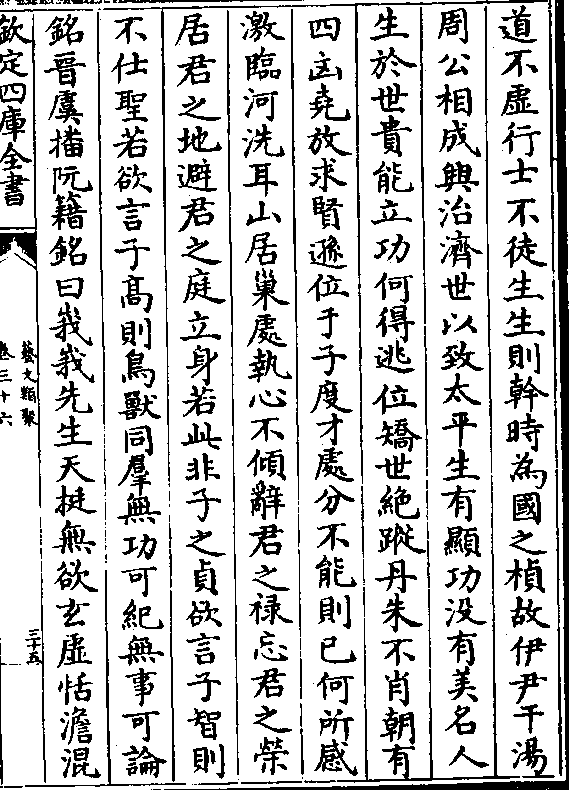 道不虛行士不徒生生則幹時為國之楨故伊尹干湯
周公相成興治濟世以致太平生有顯功没有美名人
生於世貴能立功何得逃位矯世絶蹤丹朱不肖朝有
四凶堯放求賢遜位于子度才處分不能則已何所感
激臨河洗耳山居巢處執心不傾辭君之禄忘君之榮
居君之地避君之庭立身若此非子之貞欲言子智則
不仕聖若欲言子髙則鳥獸同羣無功可紀無事可論
銘晉虞播阮籍銘曰峩峩先生天挺無欲玄虛恬澹混
欽定四庫全書
藝文類聚
卷三十六
三十五